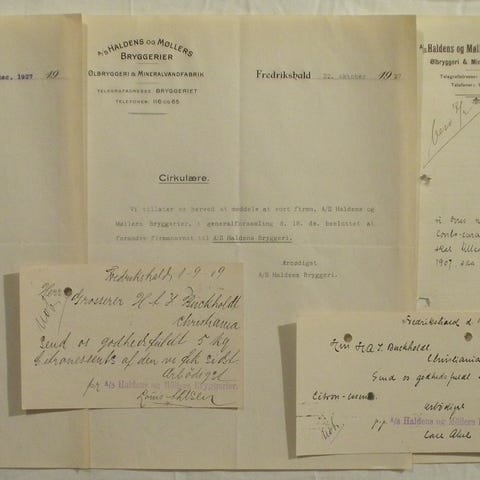 1927 19
A/S HALDENS OG MØLLERS
BRYGGERIER
ØLBRYGGERI & MINERALVANDFABRIK
TELEGRAFADRESSE: BRYGGERIET
TELEFONER: 116 OG 65
Fredrikshald 22. oktober 1927
Cirkulære.
Vi tillater os herved at meddele at vort firma, A/S Haldens og
Møllers Bryggerier, i generalforsamling d. 18. ds. besluttet at
forandre firmanavnet til A/S Haldens Bryggeri.
Ærbødigst
A/S Haldens Bryggeri.
A/S Haldens og Møll
Ølbryggeri & Min
Telegrafadresse
Telefoner:
1907
Fredrikshald 1-9 19
Herr
Grosserer H. A. J. Buckholdt
Christiania
Send os godhedsfuldt 5 kg
af den vi fik sidst
Ærbødigst
pr A/S Haldens og Møllers Bryggerier.
Fredrikshald d.
Herr H. A. J. Buckholdt.
Christiania
Send os godhedsfuldt
Citron-
Ærbødigst
A/S Haldens og Møllers